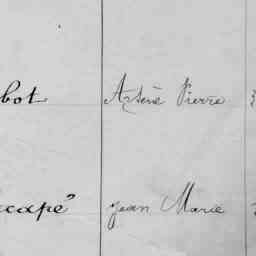 bot Arsène Pierre
capé Jean Marie